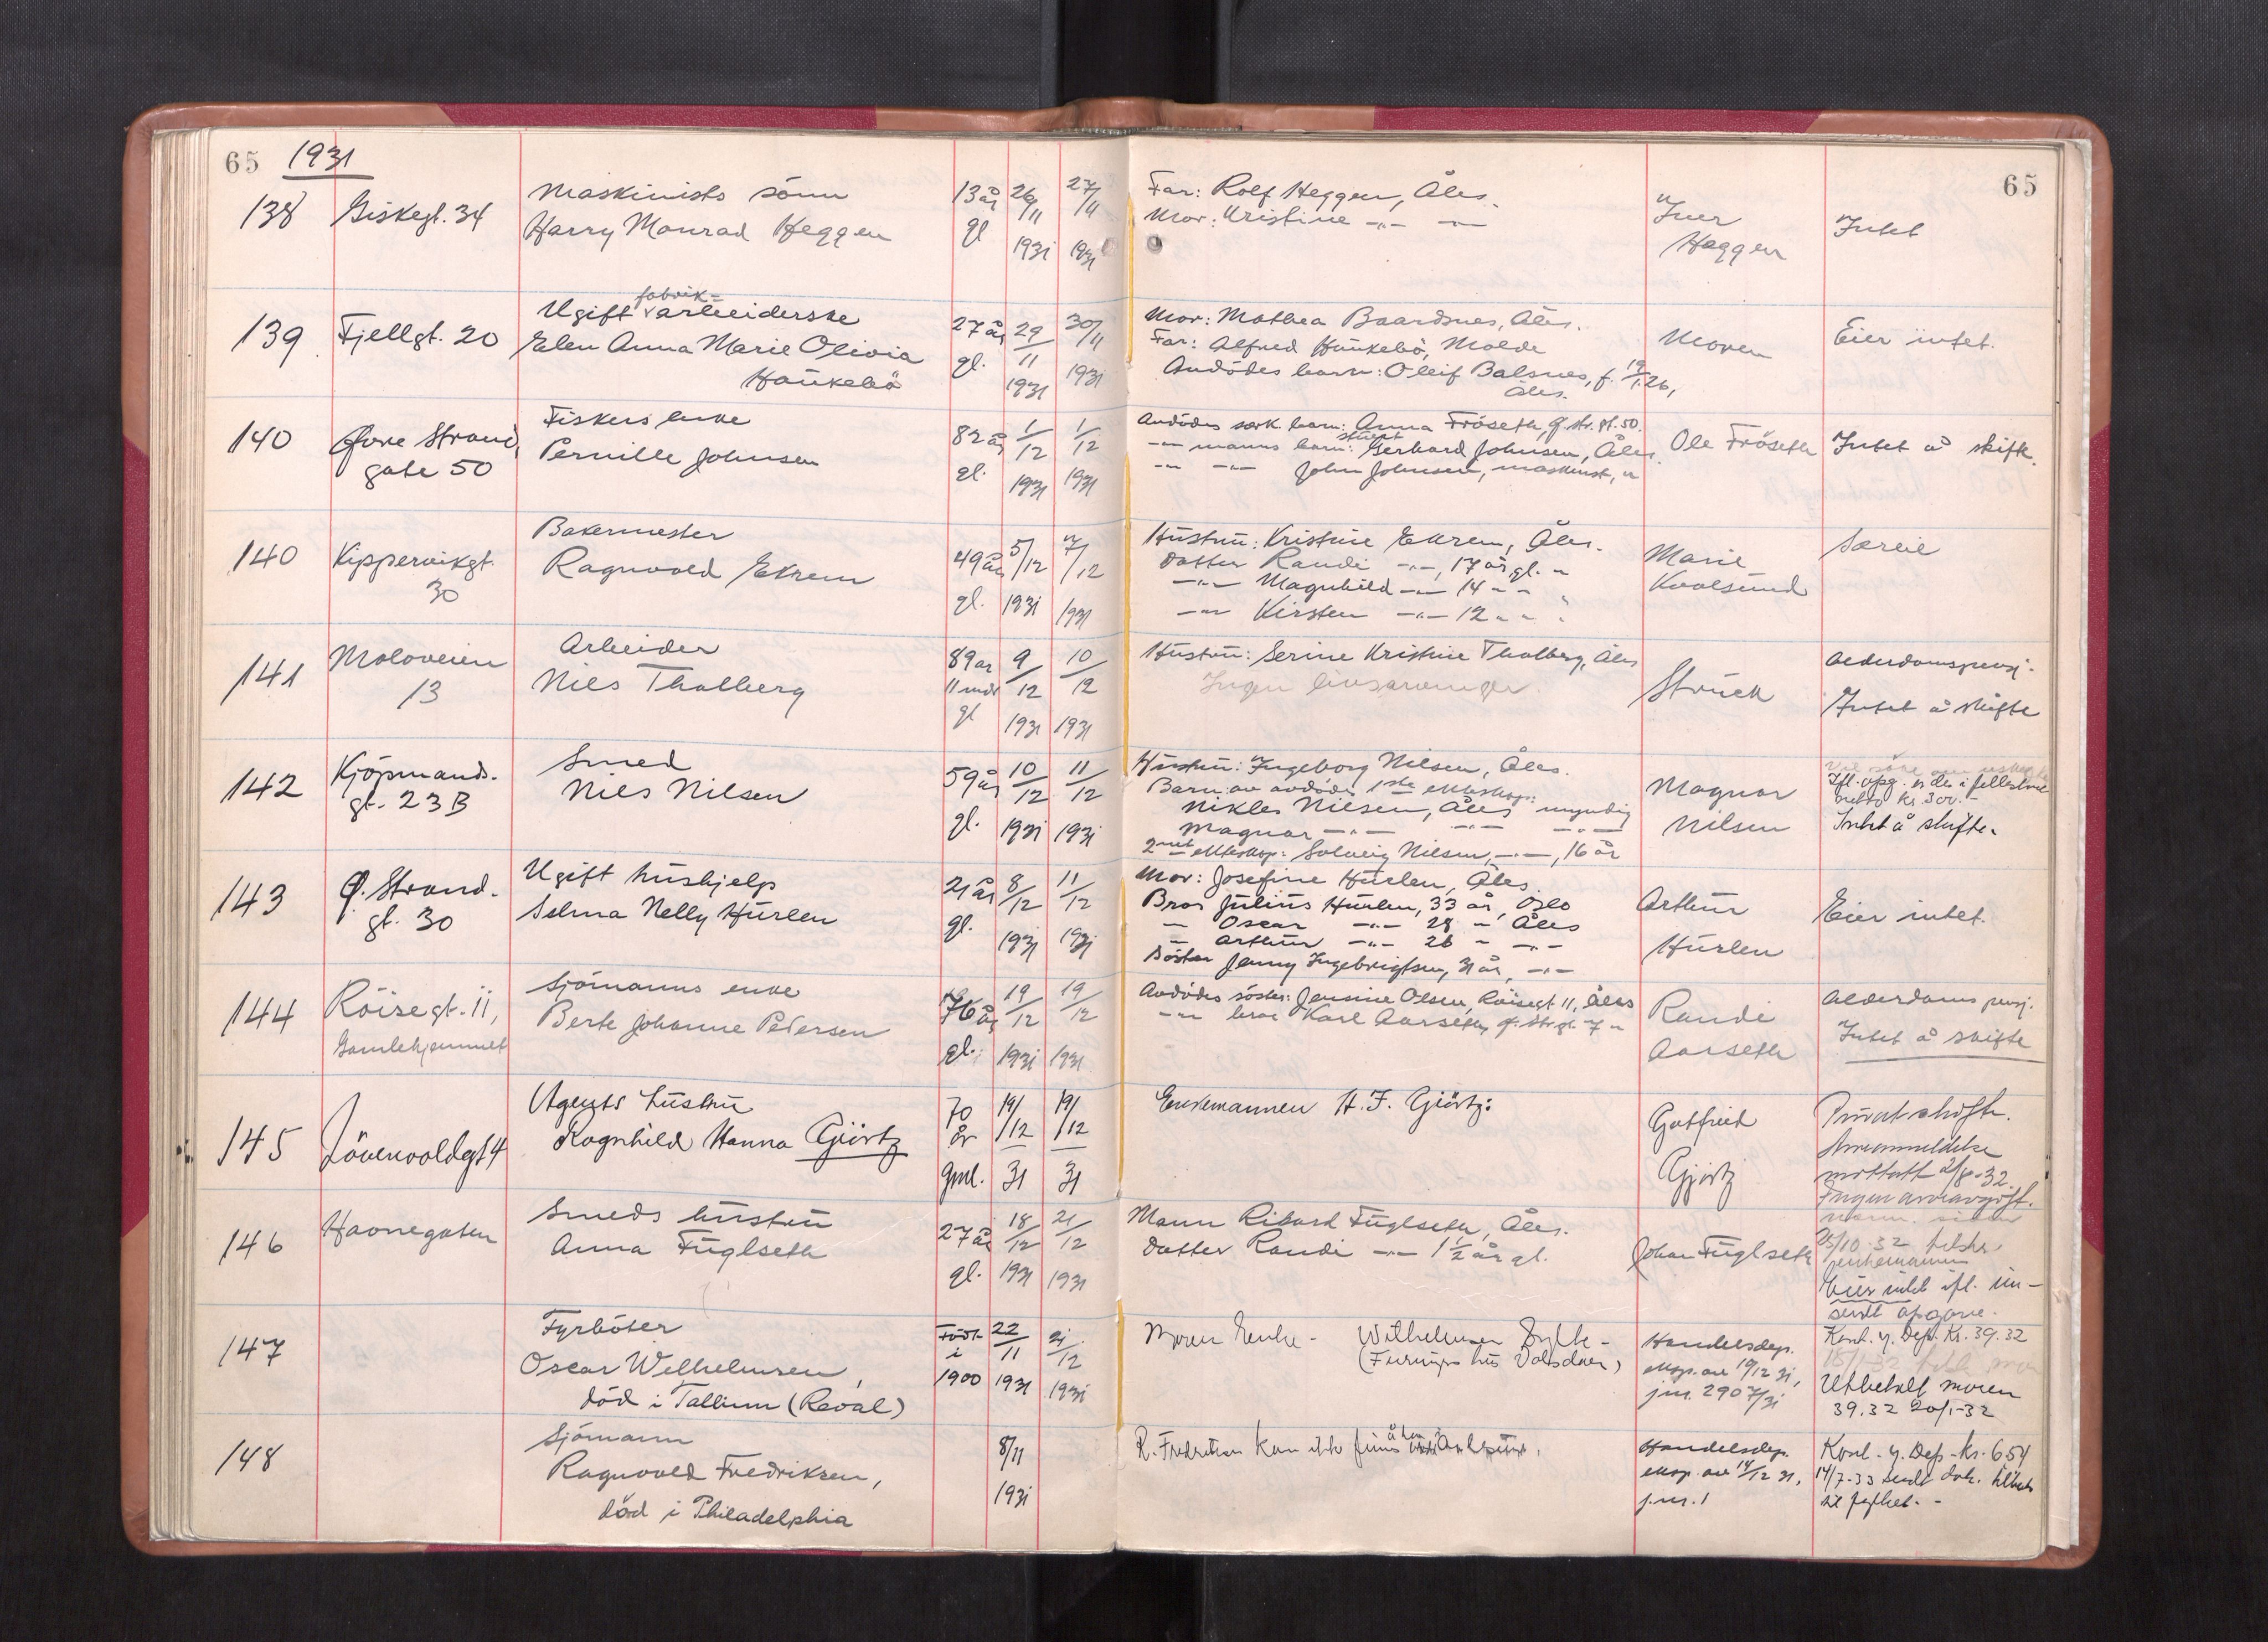 65 1931
65
138 Giskegt. 34
Maskinists sönn
Harry Monrad Heggen
13 år gl
26/11 1931
27/11 1931
Far: Rolf Heggen, Åles.
Mor: Kristine -"- -"-
Iver
Heggen
Intet
139 Fjellgt. 20
fabrik-
Ugift arbeiderske
Elen Anna Marie Olivia
Haukebö
27 år gl.
29/11 1931
30/11 1931
Mor: Mathea Baardsnes, Åles.
Far: Alfred Haukebö, Molde
Avdödes barn: Oleif Balsnes, f. 19/1.26,
Åles.
Moren
Eier intet.
140 Övre Strand
gate 50
Fiskers enke
Pernille Johnsen
82 år gl.
1/12 1931
1/12 1931
Avdödes særk. barn: Anna Fröseth, Ö. str. gt. 50.
-"- manns barn: Gerhard Johnsen, Åles.
-"- -"- John Johnsen, maskinist, "
Ole Fröseth
Intet å skifte
140 Kippervikgt.
30
Bakermester
Ragnvald Ekrem
49 år gl.
5/12 1931
7/12 1931
Hustru: Kristine Ekrem, Åles.
Datter Randi -"-, 17 år gl. "
-"- Magnhild -"- 14 " " "
-"- Kirsten -"- 12 " " "
Marie
Kvalsund
Særeie
141 Moloveien
13
Arbeider
Nils Thalberg
89 år
11 mdr
gl
9/12 1931
10/12 1931
Hustru: Serine Kristine Thalberg, Åles
Ingen livsarvinger.
Struck
Alderdomspensj.
Intet å skifte
142 Kjöpmands-
gt. 23 B
Smed
Nils Nilsen
59 år gl.
10/12 1931
11/12 1931
Hustru: Ingeborg Nilsen, Åles.
Barn av avdödes 1ste ekteskap:
Nikles Nilsen, Åles umyndig
Magnar -"- -"- -"-
2net ekteskap: Solveig Nilsen, -"-, 16 år
Magnar
Nilsen
Ifl. opg. er det i fellesboet
netto kr. 300.-
Intet å skifte.
143 Ö. Strand-
gt. 30
Ugift hushjelp
Selma Nelly Hurlen
21 år gl.
8/12 1931
11/12 1931
Mor: Josefine Hurlen, Åles
Bror Julius Hurlen, 33 år, Oslo
" Oscar -"- 28 " Åles
" Arthur -"- 26 " -"-
Söster Jenny Ingebrigtsen, 31 år, -"-
Arthur
Hurlen
Eier intet.
144 Röisegt. 11,
Gamlehjemmet
Sjömanns enke
Berte Johanne Pedersen
76 år gl.
19/12 1931
19/12 1931
Avdödes söster: Jensine Olsen, Röisegt 11, Åles
-"- bror Karl Aarseth, Ö. Str. gt. 7 "
Randi
Aarseth
Alderdoms pensj.
Intet å skifte
145 Lövenvoldgt 4
Agents hustru
Ragnhild Hanna Gjörtz
70 år gml.
19/12 31
19/12 31
Enkemannen H. F. Gjörtz:
Gotfried
Gjørtz
Privat skifte.
Arveanmeldelse
mottatt 2/8-32.
Ingen arveavgift.
146 Haonegaten
Smeds hustru
Anna Fuglseth
27 år gl.
18/12 1931
21/12 1931
Mann Rikard Fuglseth, Åles.
Datter Randi -"- 1 1/2 år gl.
Johan Fuglseth
25/10-32
enkemannen
Eier intet ifl. inn-
sendt opgave.
147
Fyrböter
Oscar Wilhelmsen,
död i Tallinn (Reval)
Född i 1900
22/11 1931
21/12 1931
Moren Enke - Wilhelmsen
Handelsdep.
eksp. av 19/12 31,
jnr. 2907/31
Kont. y. Dep. Kr. 39.32
Utbetalt moren
39.32 20/1-32
148
Sjömann
Ragnvald Fredriksen,
död i Philadelphia
8/11 1931
R. Fredriksen kan ikke finnes
Handelsdep.
eksp. av 14/12 31,
j.nr. 1
Kont. y. Dep. kr. 654
14/7-33 sendt dok. tilbake